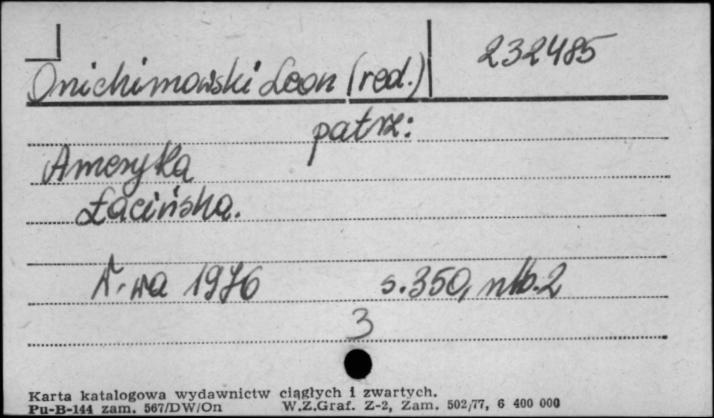 232485
Onichimowski Leon (red.)
patrz:
Ameryka
Łacińska.
W-wa 1976 s.350, nlb.2
3
Karta katalogowa wydawnictw ciągłych i zwartych.
Pu-B-144 zam. 567/DW/On W.Z.Graf. Z-2, Zam. 502/77, 6 400 000